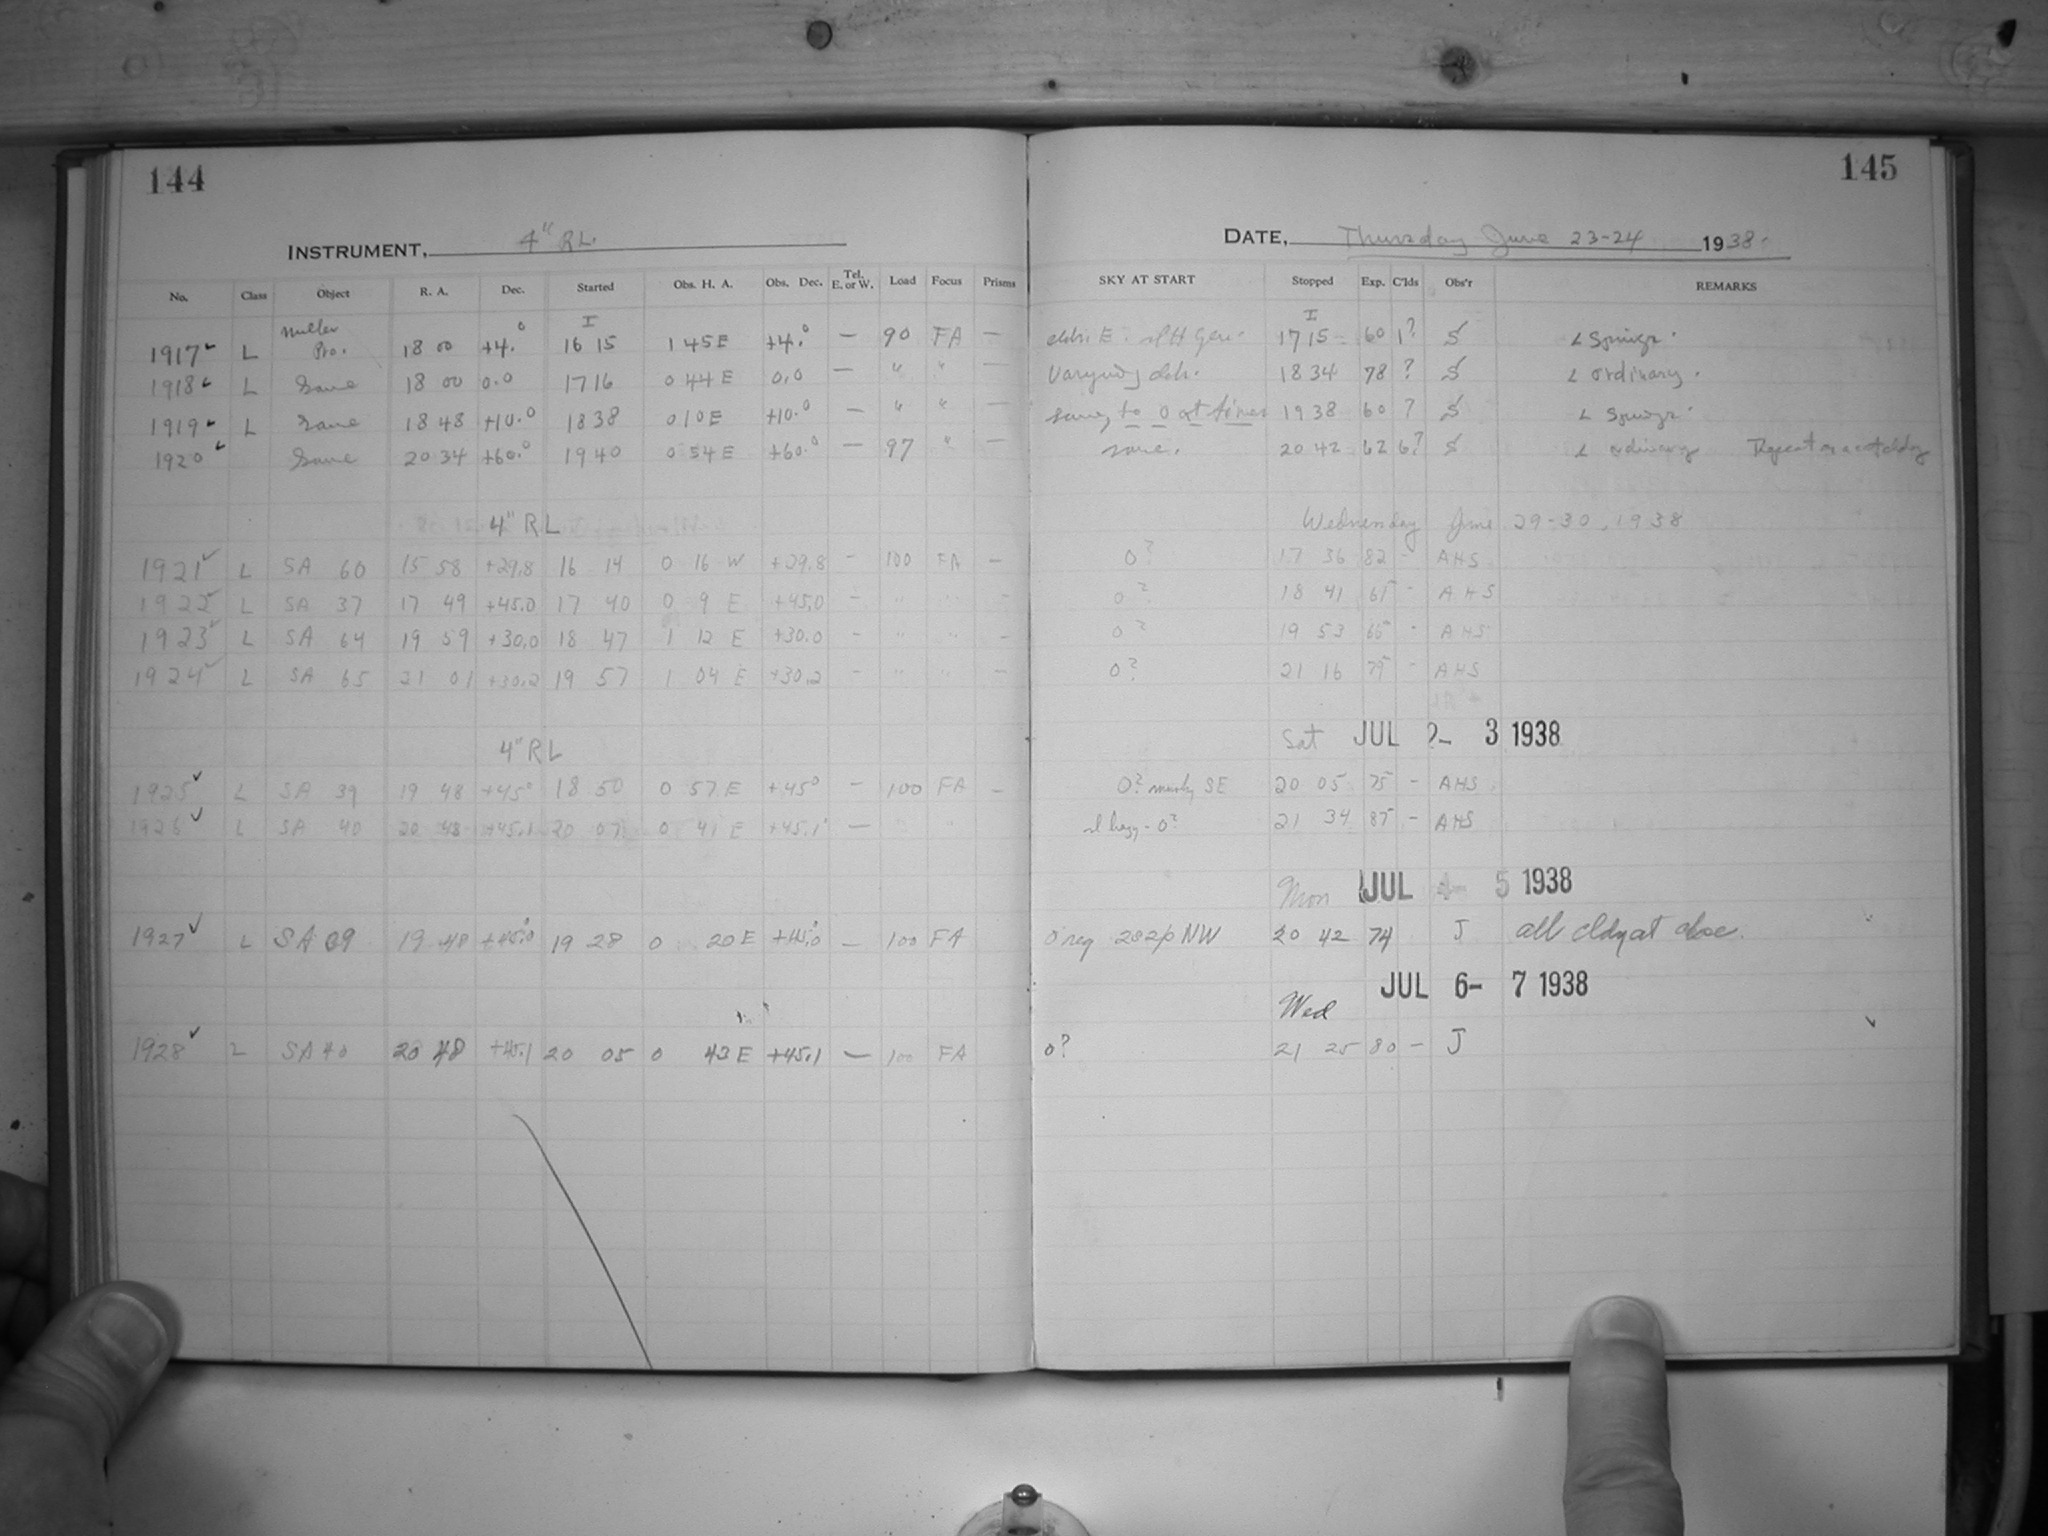 144
145
INSTRUMENT, 4" RL.
DATE, Thursday June 23-24 1938
No. Class Object R. A. Dec. Started Obs. H. A. Obs. Dec. Tel. E. or W. Load Focus Prisms SKY AT START Stopped Exp. C'lds Obs'r REMARKS
1917 L Muller Pro. 18 00 +4.° I 16 15 1 45 E +4.° — 90 FA — I 17 15 60 1? S L Springs.
1918 L Same 18 00 0.0 17 16 0 44 E 0.0 — " " — Varying clds. 18 34 78 ? S L ordinary.
1919 L Same 18 48 +10.° 18 38 0 10 E +10.° — " " — same, to 0 at times 19 38 60 ? S L Springs.
1920 Same 20 34 +60.° 19 40 0 54 E +60.° — 97 " — same. 20 42 62 6? S L ordinary Repeat
4" RL Wednesday June 29-30, 1938
1921 L SA 60 15 58 +29.8 16 14 0 16 W +29.8 - 100 FA — 0? 17 36 82 - AHS
1922 L SA 37 17 49 +45.0 17 40 0 9 E +45.0 - " " - 0? 18 41 61 - AHS
1923 L SA 64 19 59 +30.0 18 47 1 12 E +30.0 - " " - 0? 19 53 66 - AHS
1924 L SA 65 21 01 +30.2 19 57 1 04 E +30.2 - " " - 0? 21 16 79 - AHS
4" RL Sat JUL 2- 3 1938
1925 L SA 39 19 48 +45° 18 50 0 57 E +45° — 100 FA — 0? murky SE 20 05 75 - AHS
1926 L SA 40 20 48 +45.1 20 07 0 41 E +45.1 — " " sl hazy - 0? 21 34 87 - AHS
Mon JUL 4- 5 1938
1927 L SA 39 19 48 +45.0 19 28 0 20 E +45.0 — 100 FA NW 20 42 74 J all cldy at close.
JUL 6- 7 1938
Wed
1928 L SA 40 20 48 +45.1 20 05 0 43 E +45.1 — 100 FA 0? 21 25 80 - J